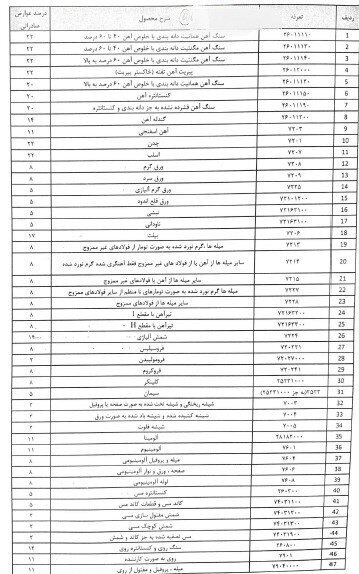 ردیف تعرفه شرح محصول درصد عوارض صادراتی
1 ۲۶۰۱۱۱۱۰ سنگ آهن هماتیت دانه بندی با خلوص آهن ۴۰ تا ۶۰ درصد ۲۲
2 ۲۶۰۱۱۱۲۰ سنگ آهن مگنتیت دانه بندی با خلوص آهن ۴۰ تا ۶۰ درصد ۲۲
3 ۲۶۰۱۱۱۴۰ سنگ آهن مگنتیت دانه بندی با خلوص آهن ۶۰ درصد به بالا
4 ۲۶۰۱۲۰۰۰ پیریت آهن تفته (خاکستر پیریت)
5 ۲۶۰۱۱۱۳۰ سنگ آهن هماتیت دانه بندی با خلوص آهن ۶۰ درصد به بالا ۲۰
6 ۲۶۰۱۱۱۵۰ کنسانتره آهن ۲۰
7 ۲۶۰۱۱۱۹۰ سنگ آهن فشرده نشده به جز دانه بندی و کنسانتره ۲۰
8 ۲۶۰۱۱۲۰۰ گندله آهن ۱۴
9 ۷۲۰۳ آهن اسفنجی ۱۱
10 ۷۲۰۱ چدن ۲۲
11 ۷۲۰۷ اسلب ۲۲
12 ۷۲۰۸ ورق گرم ۸
13 ۷۲۰۹ ورق سرد ۸
14 ۷۲۲۵ ورق گرم آلیاژی ۵
15 ۷۲۱۰۱۲۰۰ ورق قلع اندود ۵
16 ۷۲۱۶۲۱۰۰ نبشی ۵
17 ۷۲۱۶۳۱۰۰ ناودانی ۵
18 ۷۲۰۶ بیلت ۱۷
19 ۷۲۱۳ میله ها ،گرم نورد شده به صورت تومار از فولادهای غیر ممزوج ۸
20 ۷۲۱۴ سایر میله ها از آهن یا از فولادهای غیر ممزوج فقط آهنگری شده گرم نورد شده ۸
21 ۷۲۱۵ سایر میله ها از آهن یا فولادهای غیر ممزوج ۸
22 ۷۲۲۷ میله ها گرم نورد شده به صورت تومارهای نا منظم از سایر فولادهای ممزوج ۸
23 ۷۲۲۸ سایر میله ها از فولادهای ممزوج ۸
24 ۷۲۱۶۳۲۰۰ تیرآهن با مقطع I ۸
25 ۷۲۱۶۳۳۰۰ تیرآهن با مقطع H ۸
26 ۷۲۲۴ شمش آلیاژی
27 ۷۲۰۲۲۱ فروسیلیس ۸
28 ۷۲۰۲۷۰۰۰ فرومولیبدن ۳
29 ۷۲۰۲۴۱ فروکروم ۸
30 ۲۵۲۳۱۰۰۰ کلینکر ۸
31 ۲۵۲۳(به جز ۲۵۲۳۱۰۰۰) سیمان ۵
32 ۷۰۰۳ شیشه ریختگی و شیشه تخت شده به صورت صفحه یا پروفیل ۲
33 ۷۰۰۴ شیشه کشیده شده و شیشه باد شده به صورت ورق ۲
34 ۷۰۰۵ شیشه فلوت ۲
35 ۲۸۱۸۲۰۰۰ آلومینا ۱۱
36 ۷۶۰۱ آلومینیوم ۱۱
37 ۷۶۰۴ میله و پروفیل آلومینیومی ۸
38 ۷۶۰۶ صفحه ، ورق و نوار آلومینیومی ۸
39 ۷۶۰۸ لوله آلومینیومی ۸
40 ۲۶۰۳۰۰ کنسانتره مس ۵
41 ۷۴۰۳۱۱۰۰ کاتد مس و قطعات کاتد مس ۵
42 ۷۴۰۳۱۲۰۰ شمش مفتول سازی مس ۲
43 ۷۴۰۳۱۳۰۰ شمش کوچک مس ۲
44 ۷۴۰۳۱۹۰۰ مس تصفیه شده به جز کاتد و شمش ۲
45 ۲۶۰۸۰۰ سنگ روی و کنسانتره روی ۱۴
46 ۷۹۰۱ روی به صورت کارنشده ۱۱
47 ۷۹۰۴۰۰۰۰ میله ، پروفیل و مفتول از روی ۱۱